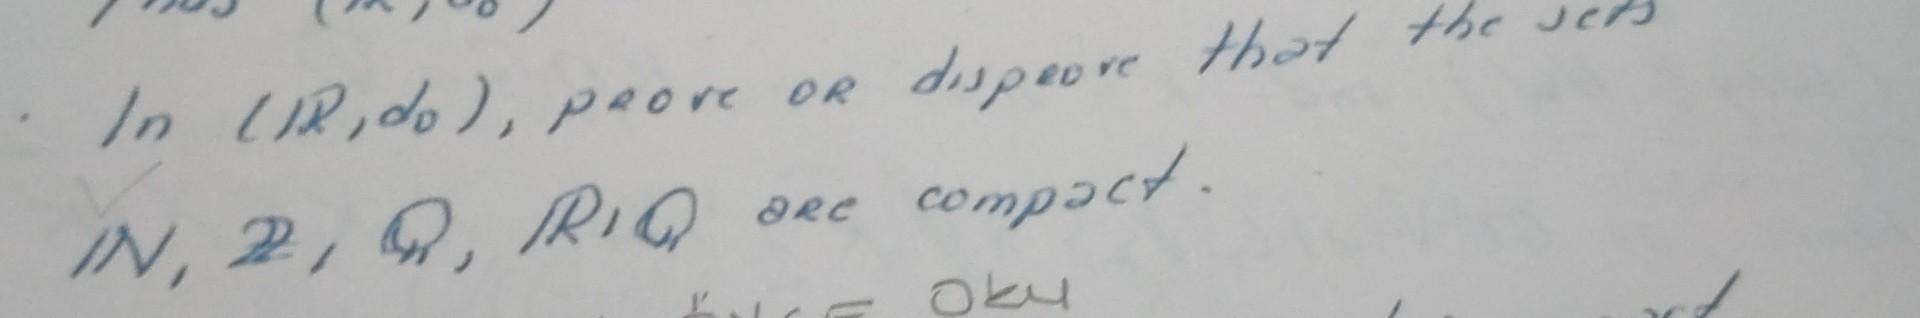 (ℝ, d₀)
In (ℝ, d₀), prove or disprove that the sets
ℕ, ℤ, ℚ, ℝ\ℚ are compact.
Oku